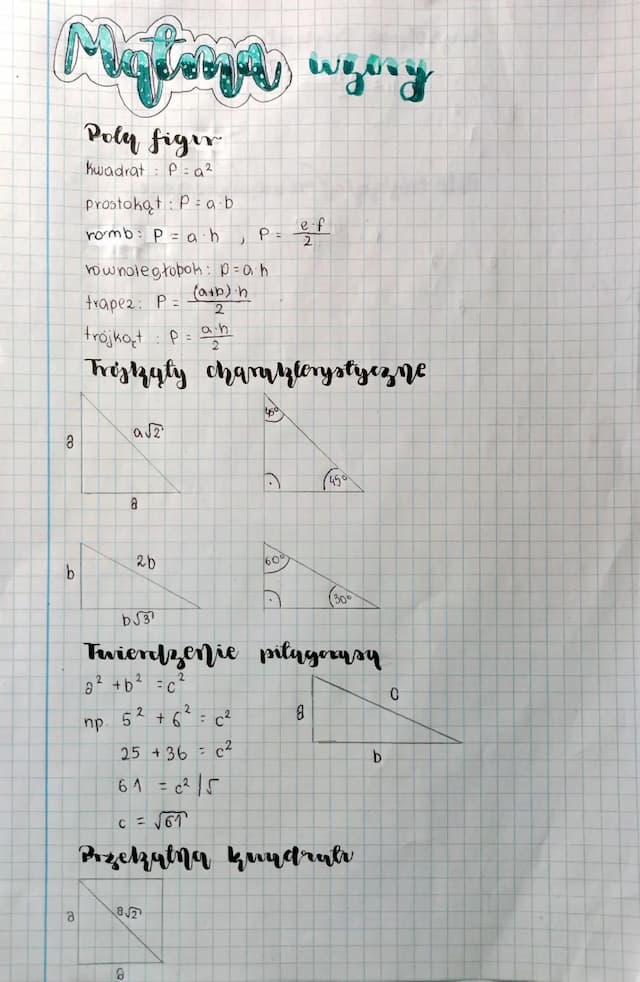 Matma wzory
Pola figur
kwadrat : P = a²
prostokąt : P = a·b
romb : P = a·h , P = e·f/2
równoległobok : P = a·h
trapez : P = (a+b)·h/2
trójkąt : P = a·h/2
Trójkąty charakterystyczne
a a√2 a
45° 45°
b 2b b√3
60° 30°
Twierdzenie pitagorasa
a² + b² = c²
np. 5² + 6² = c²
25 + 36 = c²
61 = c² /√
c = √61
a c b
Przekątna kwadratu
a a√2 a